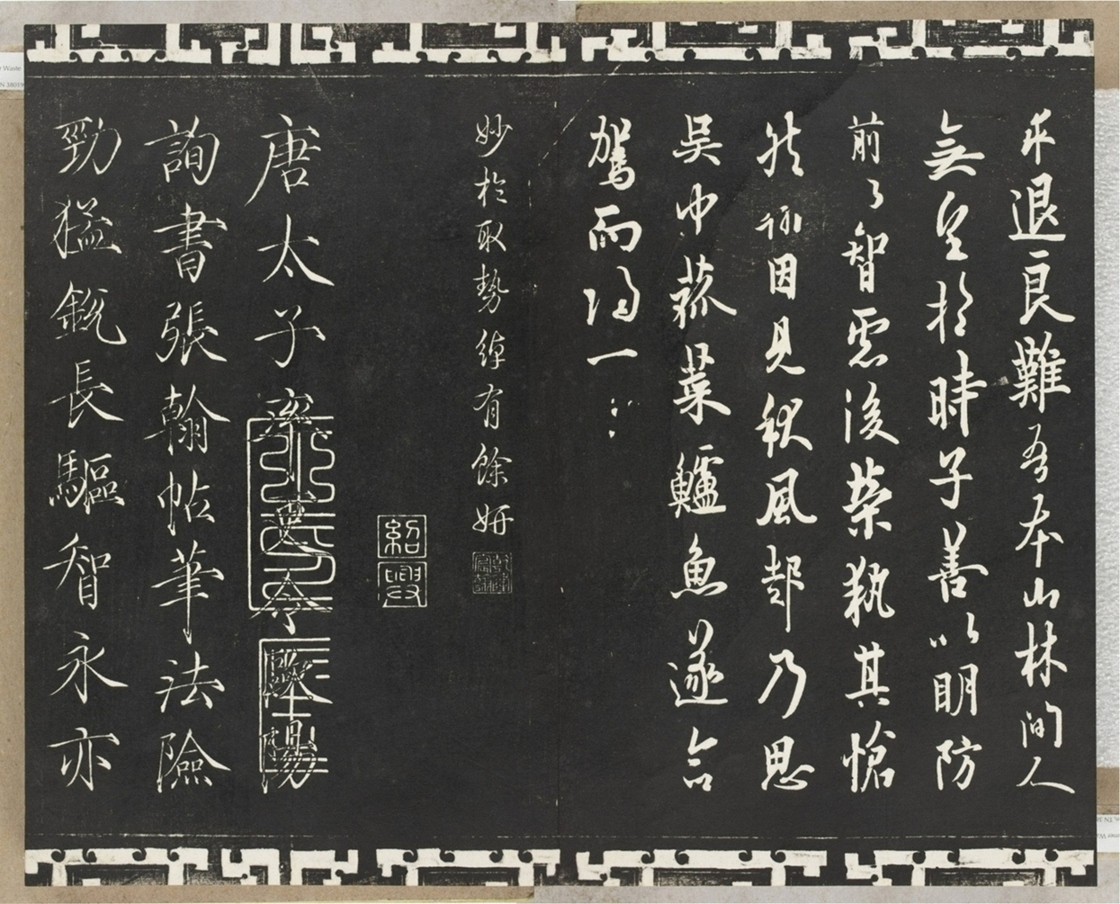 求退良難吾本山林間人
無望於時子善以明防
前以智慮後榮執其愴
然翰因見秋風起乃思
吳中菰菜鱸魚遂命
駕而歸
妙於取勢綽有餘妍
乾隆宸翰
紹興
唐太子率更令歐陽
詢書張翰帖筆法險
勁猛銳長驅智永亦